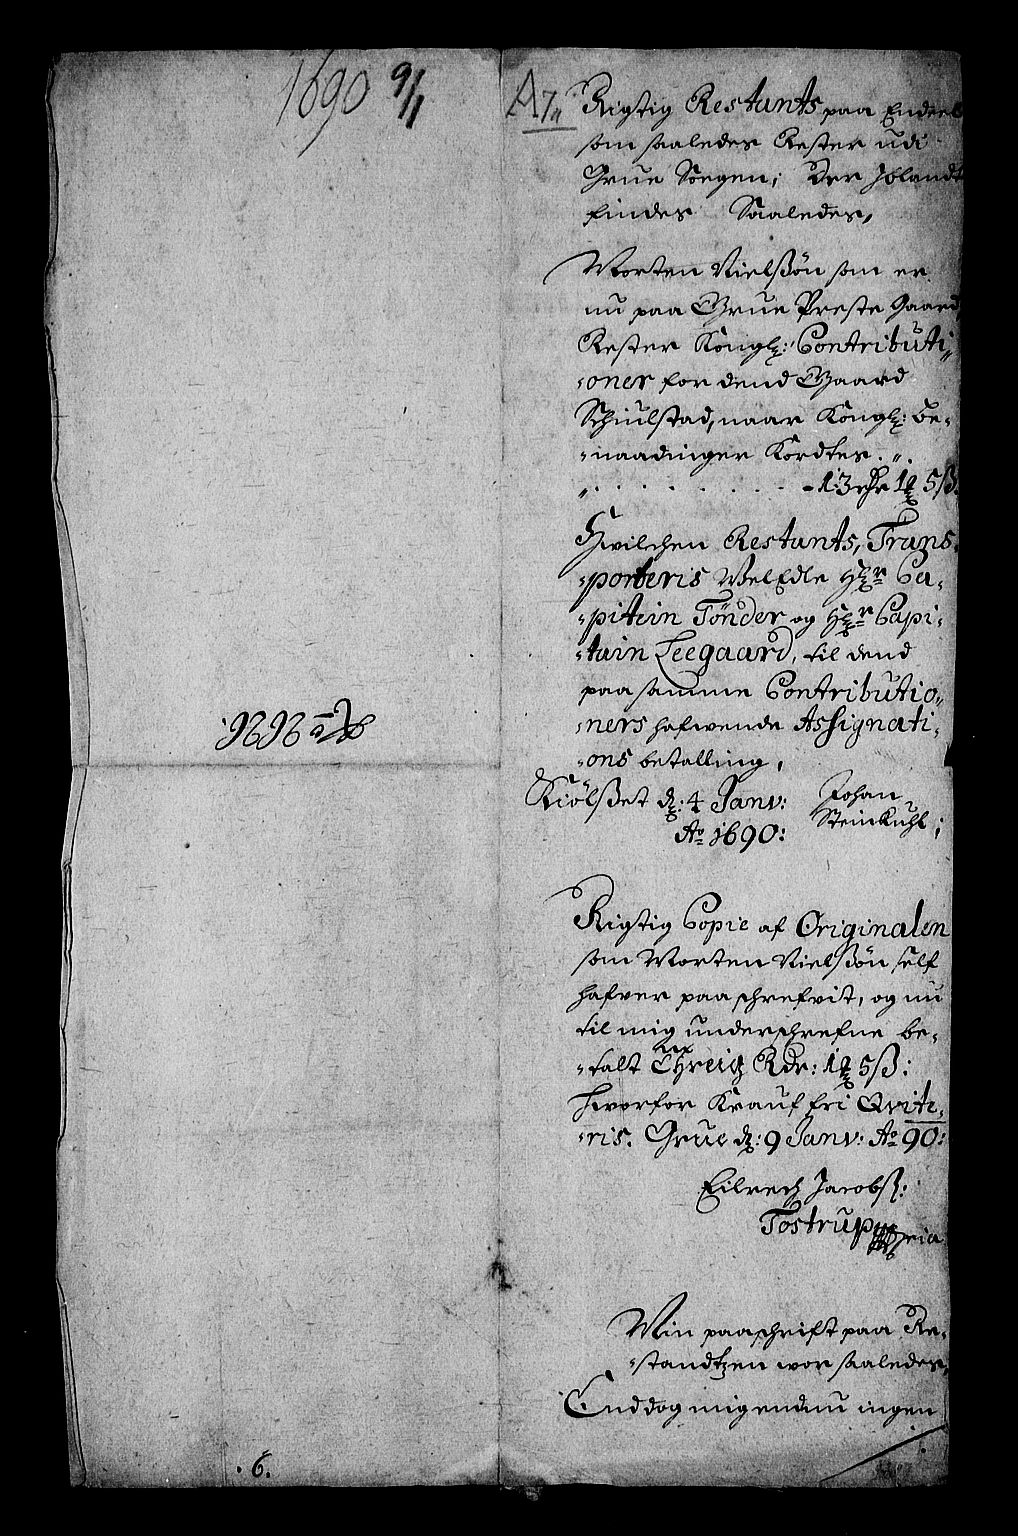 1690 9/1
A 7
Rigtig Restants paa Endeel
som saaledes Rester udi
Grue Soegen; Der Iblandt
findes Saaledes,
Morten Nielsøn som er
nu paa Grue Preste Gaard
Rester Kongl: Contributi-
oner for dend Gaard
Schiulstad, naar Kongl: be-
naadinger Kordtes
13 rdr 1 5 ß
Hvilchen Restants, Trans-
porteris Wel Edle Hr Ca-
pitein Tønder og Hr Capi-
tain Leegaard, til dend
paa samme Contributio-
ners hafwende Assignati-
ons betalling,
Kiølset d: 4 Janv: Johan
Ao 1690: Steinkuhl;
Rigtig Copie af Originalen
som Morten Nielsøn self
hafver paaschrefvit, og nu
til mig underschrefne be-
talt Rdr: 1 5 ß:
hvorfor Krauf fri Qvite-
ris. Grue d: 9 Janv: Ao 90:
Eilrech Jacobs:
Tostrup
Min paaschrift paa Re-
standtzen wor saaledes,
End dog mig endnu ingen
6.